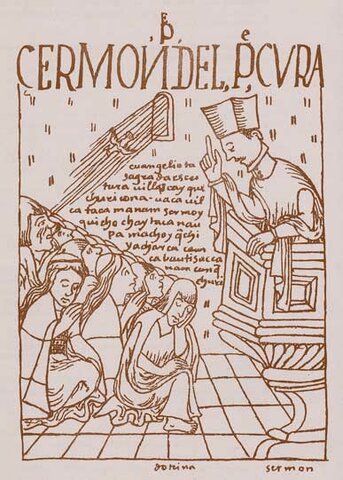 Pe
CERMON DEL Pe CVRA
euangelio ta
sagrada esc
tura uillascayque
churicona uaca uil
ca taca mana sermoy
quicho chaytaca nau
pa machoyquichi
yacharca cam
ca bautisasca
nam canqui
churi
dotrina
sermon